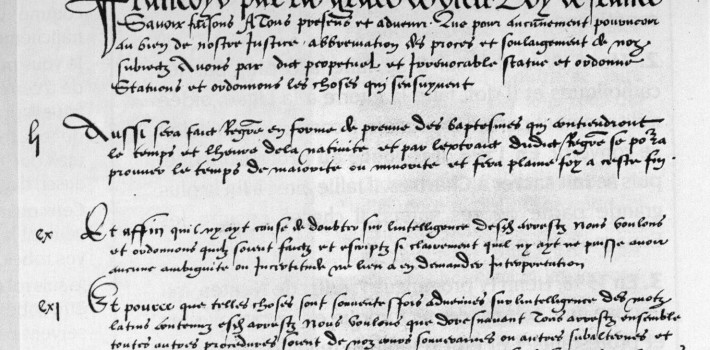 Francoys par la grace de dieu Roy de france
Scavoir faisons A Tous presens et advenir Que pour aucunement pourveoir
au bien de nostre Justice abbreviation des proces et soulagement de noz
subiectz Avons par edict perpetuel et Irrevocable statue et ordonne
Statuons et ordonnons les choses qui sensuyvent
li Aussi sera faict Regre en forme de preuve des baptesmes qui contiendront
le temps et lheure de la nativite et par lextraict dudict Regre se pora
prouver le temps de maiorite ou minorite et fera plaine foy a ceste fin
cx Et affin quil ny ayt cause de doubter sur lintelligence desdz arrestz Nous voulons
et ordonnons quilz soient faictz et escriptz si clairement quil ny ayt ne puisse avoir
aucune ambiguite ou Incertitude ne lieu a en demander Interpretation
cxi Et pource que telles choses sont souventesfois advenues sur lintelligence des motz
latins contenuz esdz arrestz Nous voulons que doresnavant Tous arrestz ensemble
toutes autres procedures soient de noz cours souveraines ou autres subalternes et